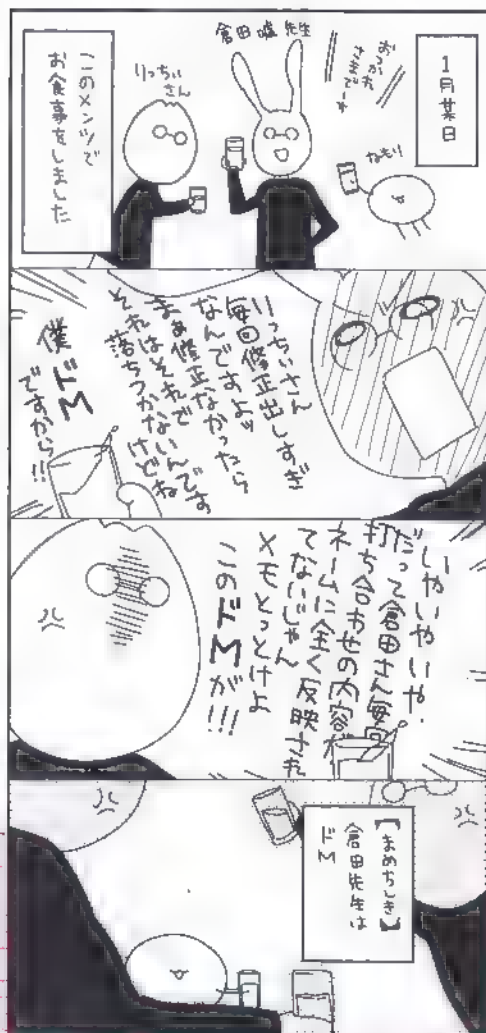 1月某日
おつかれ
さまでーす
ねもり
倉田嘘先生
りっちぃ
さん
このメンツで
お食事をしました
りっちぃさん
毎回修正出しすぎ
なんですよッ
まぁ修正なかったら
それはそれで
落ちつかないんです
けどね
僕ドM
ですから!!
いやいやいや、
だって倉田さん毎回
打ち合わせの内容が
ネームに全く反映され
てないじゃん
メモとっとけよ
このドMが!!!
【まめちしき】
倉田先生は
ドM